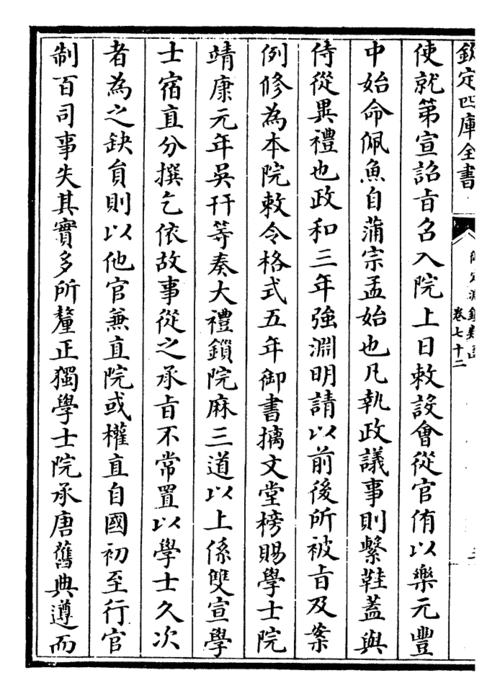 欽定四庫全書
卷七十二
使就第宣詔旨名入院上日敕設會從官侑以樂元豐
中始命佩魚自蒲宗孟始也凡執政議事則繫鞋蓋與
侍從異禮也政和三年強淵明請以前後所被旨及案
例修為本院敕令格式五年御書摛文堂榜賜學士院
靖康元年吳幵等奏大禮鎖院麻三道以上係雙宣學
士宿直分撰乞依故事從之承旨不常置以學士久次
者為之缺員則以他官兼直院或權直自國初至行官
制百司事失其實多所釐正獨學士院承唐舊典遵而